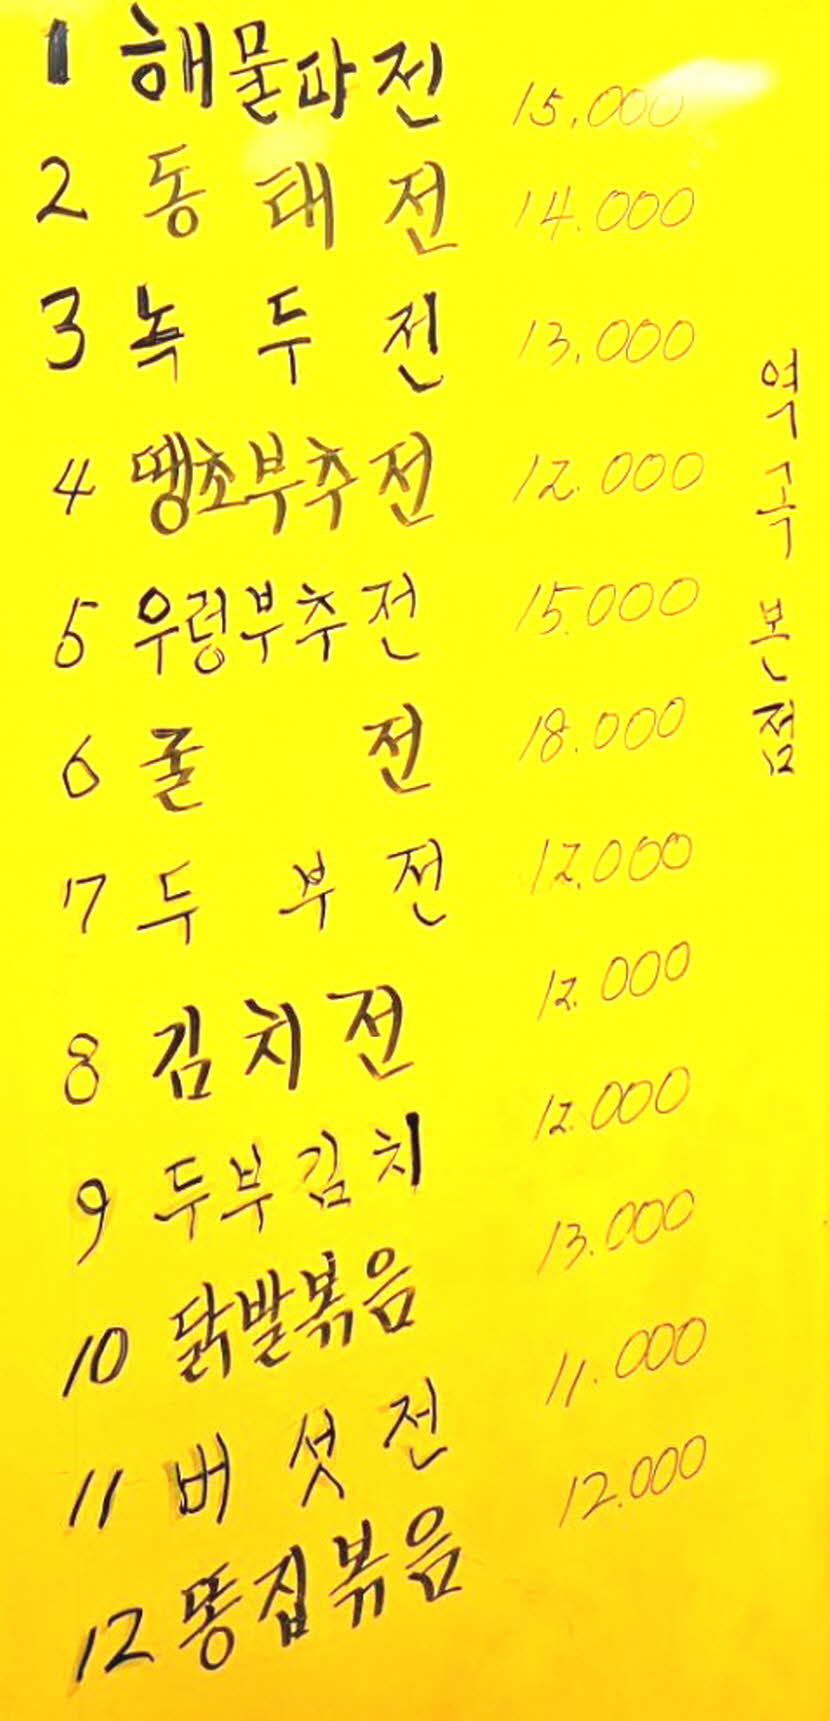 1 해물파전 15,000
2 동태전 14.000
3 녹두전 13,000
4 땡초부추전 12.000
5 우렁부추전 15.000
6 굴전 18.000
7 두부전 12.000
8 김치전 12.000
9 두부김치 12.000
10 닭발볶음 13.000
11 버섯전 11.000
12 똥집볶음 12.000
역곡본점